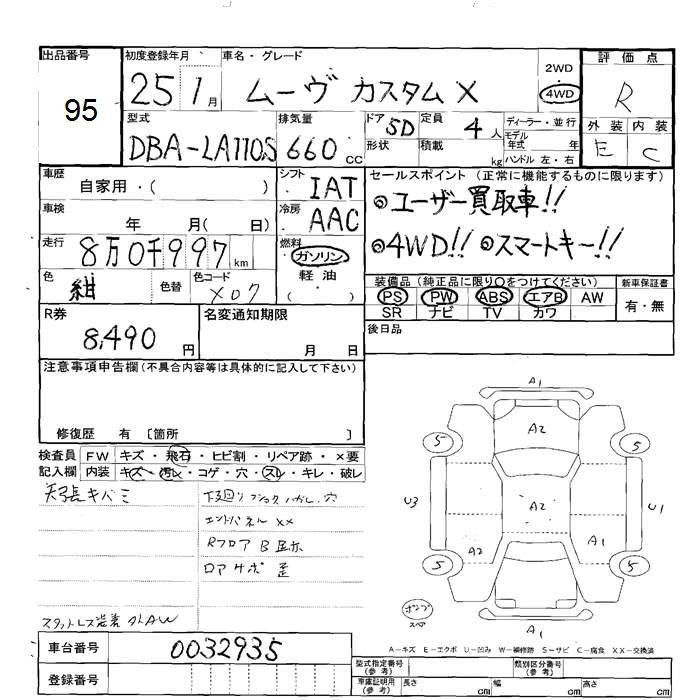 出品番号
95
初度登録年月
25 1 月
車名・グレード
ムーヴ カスタム X
2WD
4WD
評価点
R
型式
DBA-LA110S
排気量
660 cc
ドア 5D
形状
定員 4 人
積載 kg
ディーラー・並行
モデル年式 年
ハンドル 左・右
外装 内装
E C
車歴
自家用・( )
シフト IAT
セールスポイント (正常に機能するものに限ります)
◎ユーザー買取車!!
車検
年 月( 日)
冷房 AAC
◎4WD!! ◎スマートキー!!
走行
8万0千997 km
燃料
ガソリン
軽油
( )
色
紺
色替
色コード
X07
装備品 (純正品に限り○をつけてください)
PS PW ABS エアB AW
SR ナビ TV カワ
新車保証書
有・無
R券
8,490 円
名変通知期限
月 日
後日品
注意事項申告欄 (不具合内容等は具体的に記入して下さい)
修復歴 有 〔箇所 〕
検査員
記入欄
FW キズ・飛石・ヒビ割・リペア跡・×要
内装 キズ・汚レ・コゲ・穴・スレ・キレ・破レ
エンドパネル XX
Rフロア B
ロアサポ 歪
A1
A2
5 5
U3 A2 U1
A2 A1
5 5
A1
A-キズ E-エクボ U-凹み W-補修跡 S-サビ C-腐食 XX-交換済
車台番号
0032935
登録番号
型式指定番号
(参考)
類別区分番号
(参考)
車庫証明用
(参考)
長さ cm 幅 cm 高さ cm